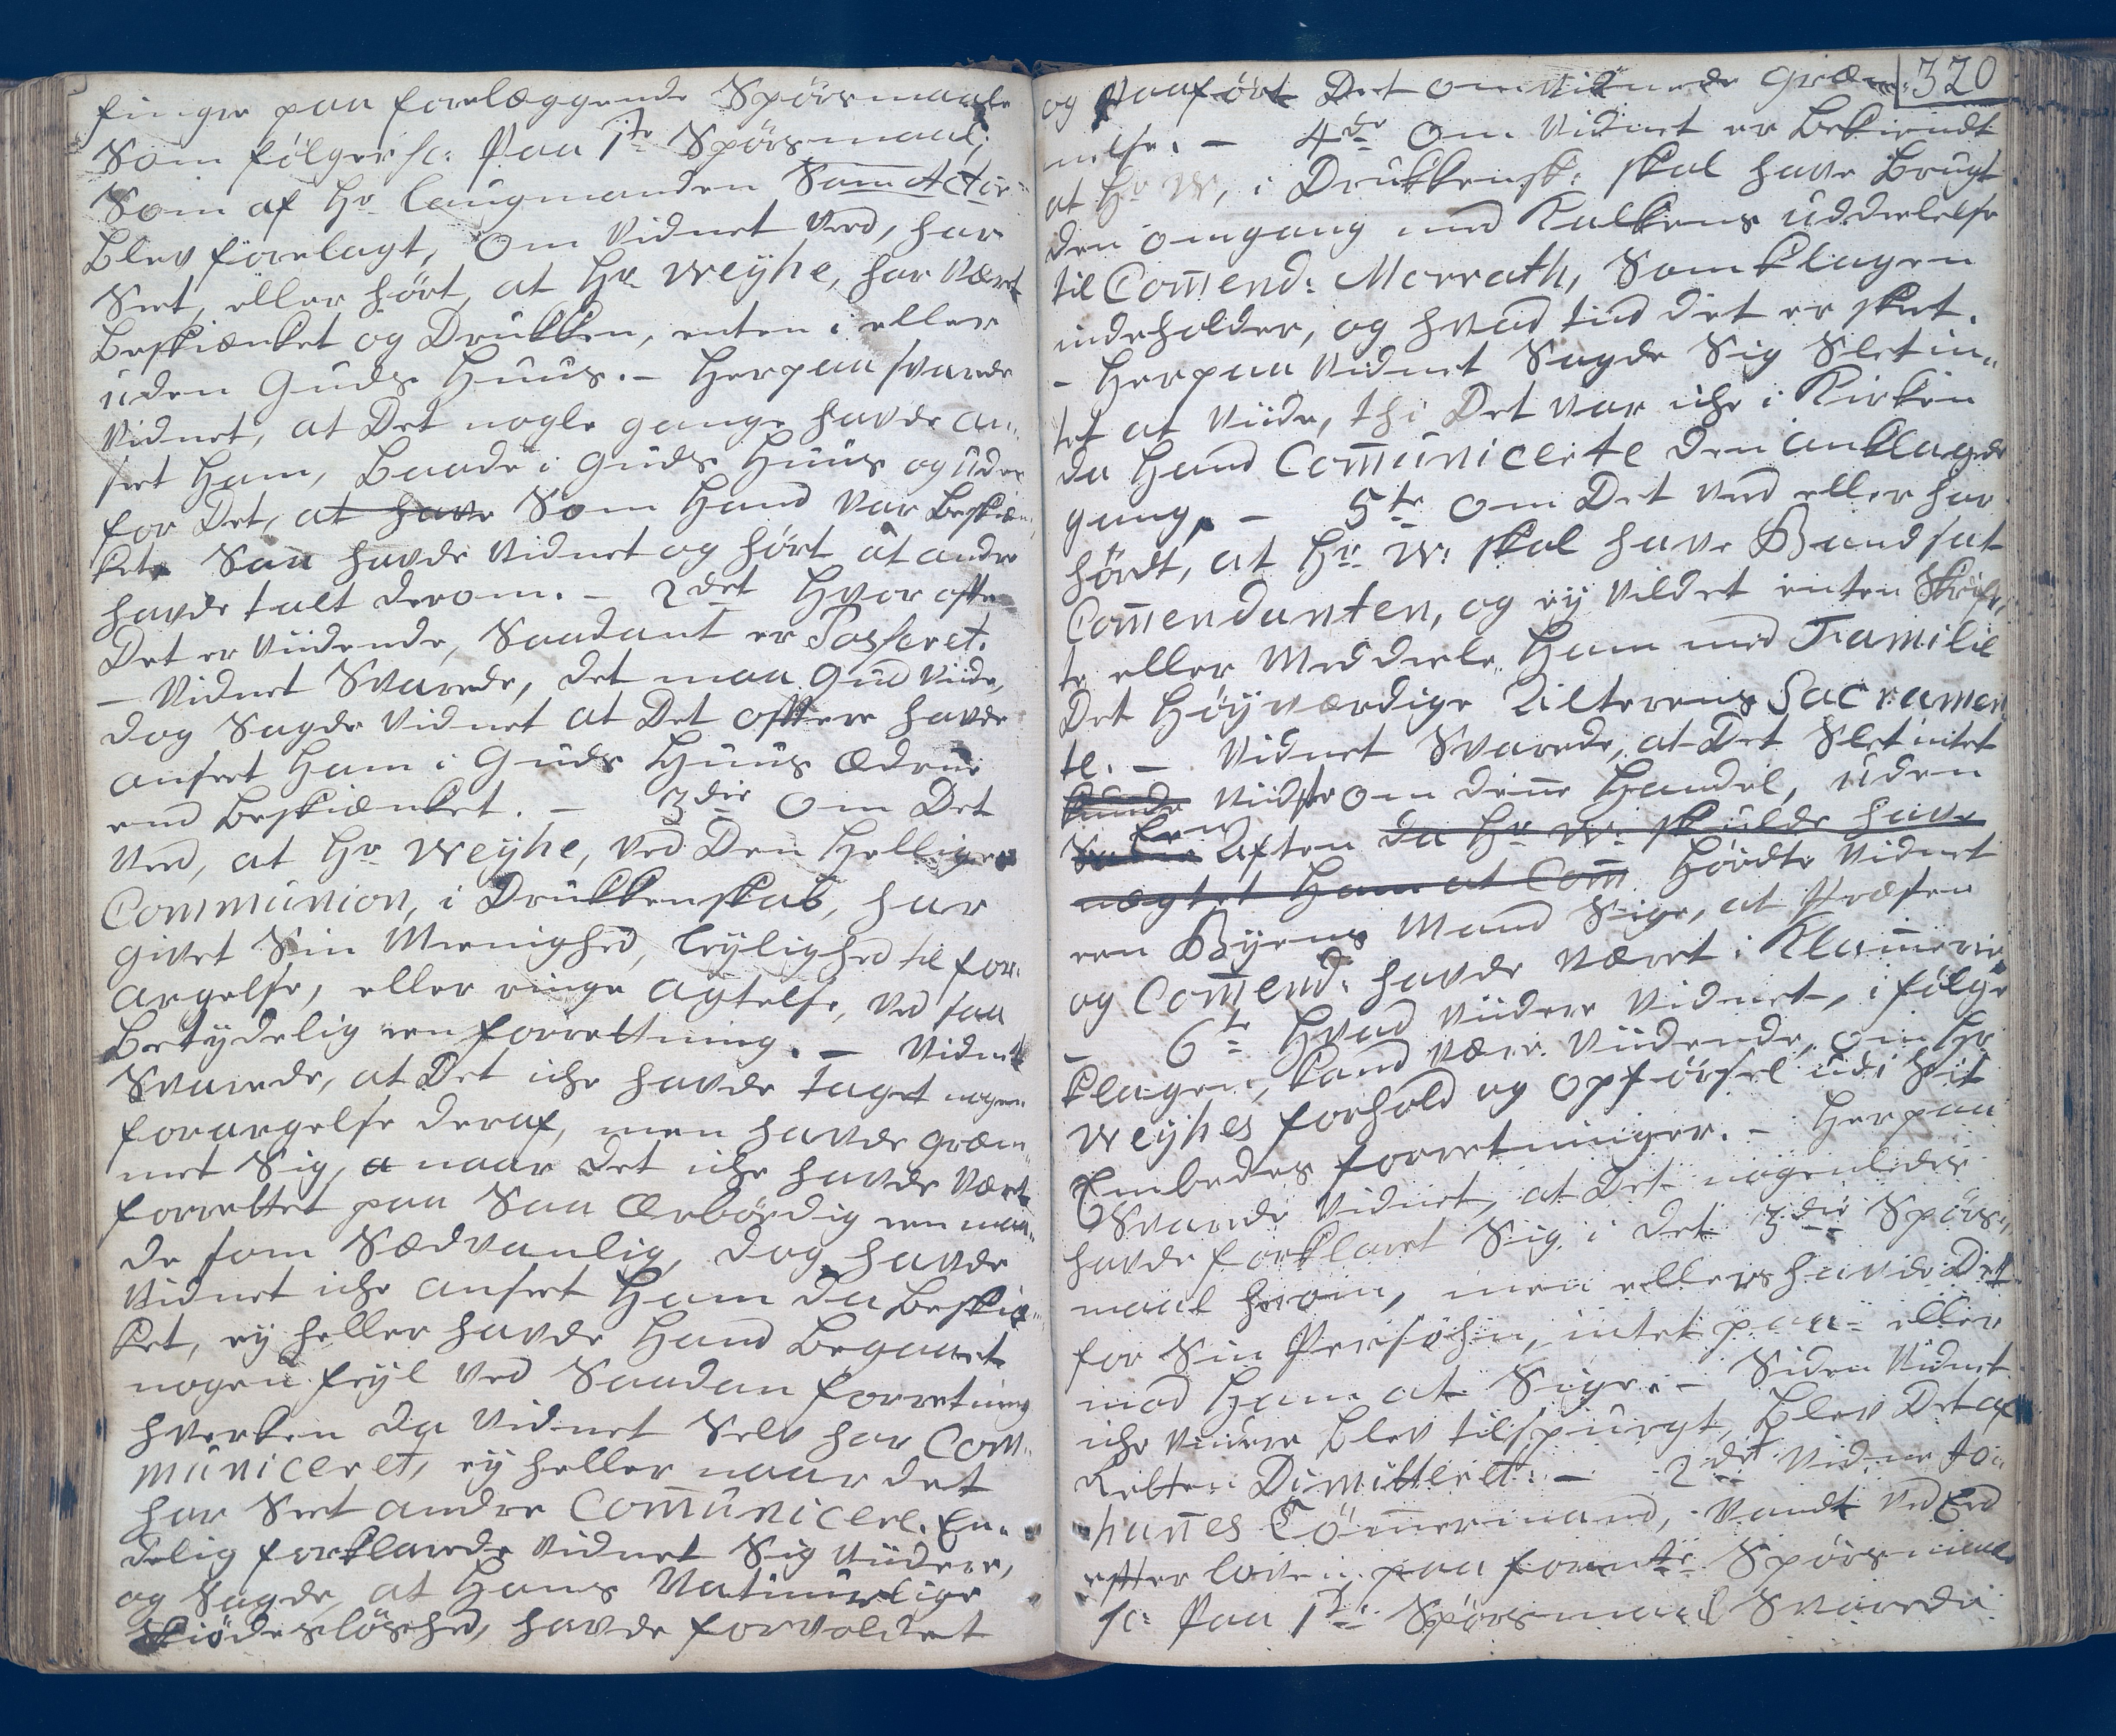 finger paa forelæggende Spörsmaale
Som fölger sc: Paa 1te Spörsmaal;
Som af Hr laugmanden Som Actor
blev forelagt, Om Vidnet Veed, har
Seet, eller hört, at Hr Weÿhe, har Været
beskiænket og Drukken, enten i eller
uden Guds Huus. – Herpaa svarede
Vidnet, at Det nogle gange havde an-
seet Ham, baade i Guds Huus og uden
for Det, at have Som Hand Var beskiæn-
ket. Saa havde Vidnet og hört at andre
havde talt derom. – 2det Hvor ofte
Det er Viidende, Saadant er Passeret.
– Vidnet Svarede, det maa Gud Viide,
dog Sagde Vidnet at Det oftere havde
anseet Ham i Guds Huus Ædrue
end beskiænket. – 3die Om Det
Veed, at Hr Weÿhe, ved Den Hellige
Communion, i Drukkenskab, har
givet Sin Meenighed, leÿlighed til for-
argelse, eller ringe agtelse, ved saa
betÿdelig een forrettning. – Vidnet
Svarede, at Det iche havde taget nogen
forargelse deraf, men havde græm-
met Sig, a naar det iche havde Været
forrettet paa Saa Ærbödig een maa-
de som Sædvanlig, dog havde
Vidnet iche anseet Ham da beskiæ-
ket, eÿ heller havde Hand begaaet
nogen feÿl ved Saadan forretning
hverken da Vidnet Selv har Com-
municeret, eÿ heller naar det
har Seet andre Comunicere. En-
delig forklarede Vidnet Sig Viidere,
og Sagde, at Hans Naturlige
Skiödeslöshed, havde forvoldet
og Paafört Det omvidnede græm- 320
melse. – 4de Om Vidnet er bekiendt
at Hr W, i Drukkensk: skal have brugt
den omgang med Kalkens uddeelelse
til Comend: Merrath, Som klagen
indeholder, og hvad tiid det er skeet.
– Herpaa Vidnet Sagde Sig Slet in-
tet at Viide, thi Det var iche i Kirken
da Hand Comunicerte den anklagede
gang. – 5te Om Det veed eller har
hördt, at Hr W: skal have Bandsat
Comendanten, og eÿ vildet enten Skrif-
te eller Meddeele Ham med Familie
Det Höÿværdige Alterens Sacramen
te. – Vidnet Svarede, at Det Slet intet
kunde Viidste om denne Handel, uden
Een Aften da Hr W: skulde have
nægtet Ham at Com Hördte Vidnet
een Bÿens Mand Sige, at Præsten
og Comend: havde været i Klammerie
– 6te Hvad Viidere Vidnet, i fölge
klagen, kand være Viidende, om Hr
Weÿhes forhold og opförsel udi hst
Embedes forretninger. – Herpaa
Svarede Vidnet, at Det nogenledes
havde forklaret Sig i det 3die Spörs-
maal herom, men ellers havde Det
for Sin Persohn, intet paa eller
mod Ham at Sige. – Siden Vidnet
iche videre blev tilspurgt, blev Det af
Retten Dimitteret. – 2det Vidne Jo-
hannes Tömmermand, Vandt ved Eed
efter loven paa forente Spörsmaale
sc: Paa 1te Spörsmaal Svarede